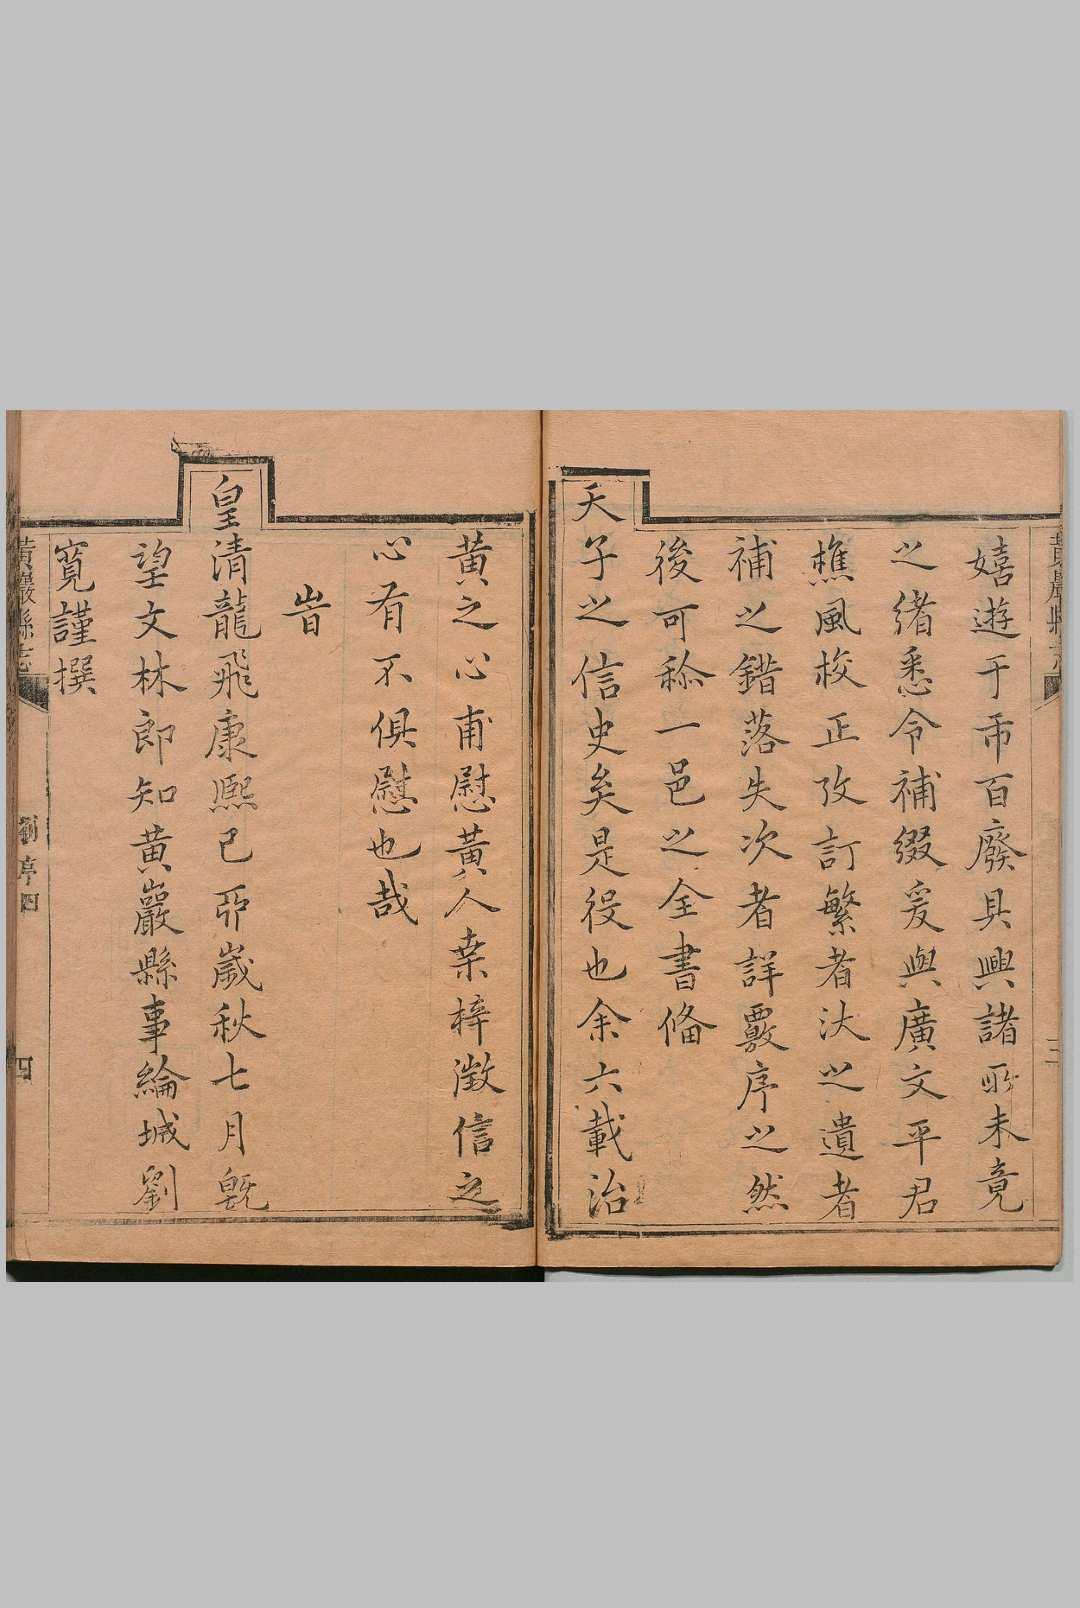 嬉遊于市百廢具興諸所未竟
之緒悉令補綴爰與廣文平君
樵風校正攷訂繁者汰之遺者
補之錯落失次者詳覈序之然
後可称一邑之全書俻
天子之信史矣是役也余六載治
黄之心甫慰黄人桒梓徵信之
心有不俱慰也哉
旹
皇清龍飛康熈己夘歲秋七月旣
望文林郎知黄巖縣事綸城劉
寬謹撰
黃巖縣志　劉序四　四